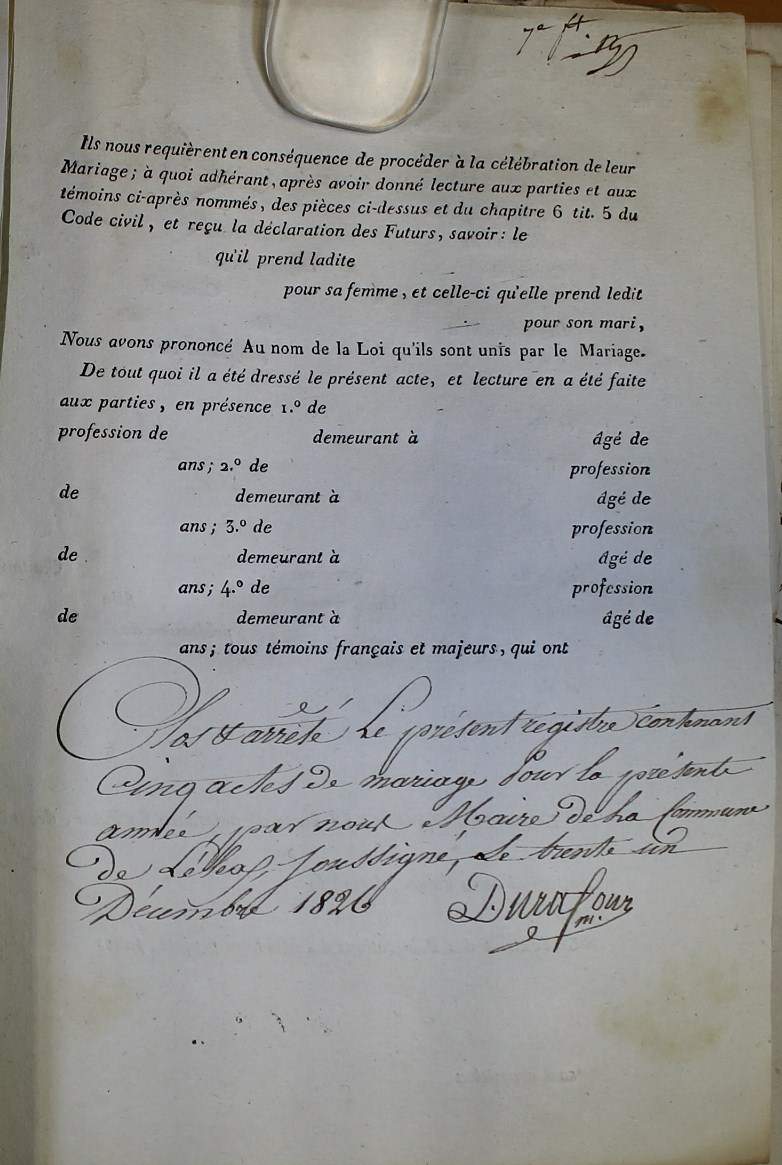 7e ft
Ils nous requièrent en conséquence de procéder à la célébration de leur
Mariage; à quoi adhérant, après avoir donné lecture aux parties et aux
témoins ci-après nommés, des pièces ci-dessus et du chapitre 6 tit. 5 du
Code civil, et reçu la déclaration des Futurs, savoir: le
qu'il prend ladite
pour sa femme, et celle-ci qu'elle prend ledit
pour son mari,
Nous avons prononcé Au nom de la Loi qu'ils sont unis par le Mariage.
De tout quoi il a été dressé le présent acte, et lecture en a été faite
aux parties, en présence 1.º de
profession de demeurant à âgé de
ans; 2.º de profession
de demeurant à âgé de
ans; 3.º de profession
de demeurant à âgé de
ans; 4.º de profession
de demeurant à âgé de
ans; tous témoins français et majeurs, qui ont
Clos & arrêté Le présent registre contenant
Cinq actes de mariage Pour la présente
année, par nous Maire De La Commune
De soussigné, Le trente un
Décembre 1826 Durafour
m.